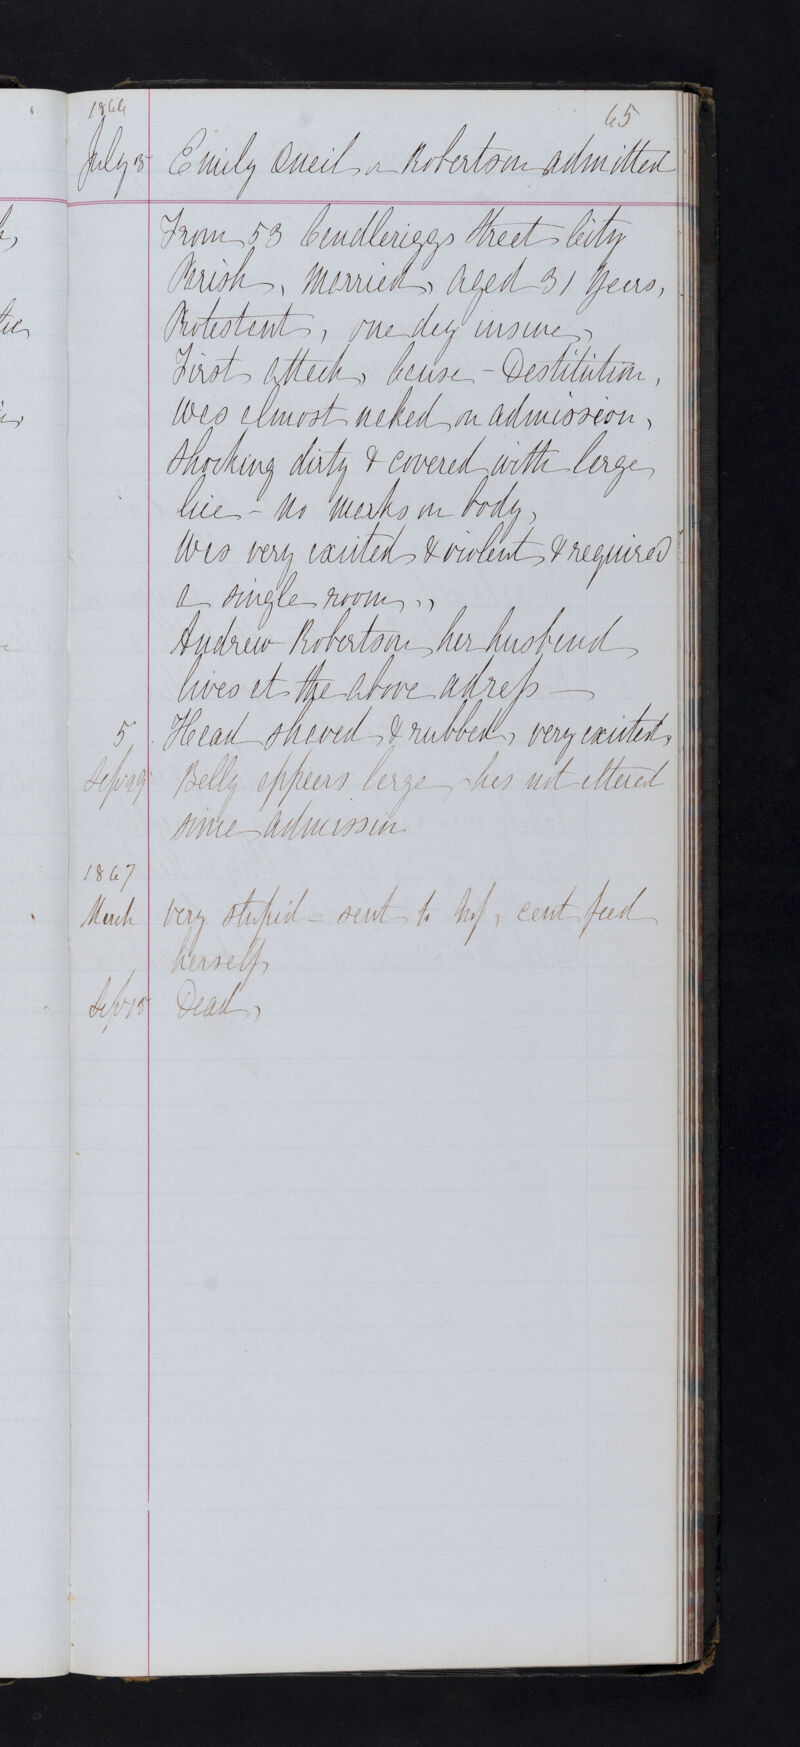 1866
65
July 3 Emily Oneil or Robertson admitted
From 53 Candleriggs Street City
Parish, Married, aged 31 years,
Protestant, one day insane,
First attack, Cause - Destitution,
was almost naked on admission,
shocking dirty & covered with large
lice - no marks on body,
Was very excited & violent & required
a single room,,
Andrew Robertson her husband
lives at the above adress —
5 Head shaved & rubbed, very excited,
Sept 19 Belly appears large, has not altered
since admission
1867
March very stupid - sent to , cant feed
herself
Sept 15 Dead,